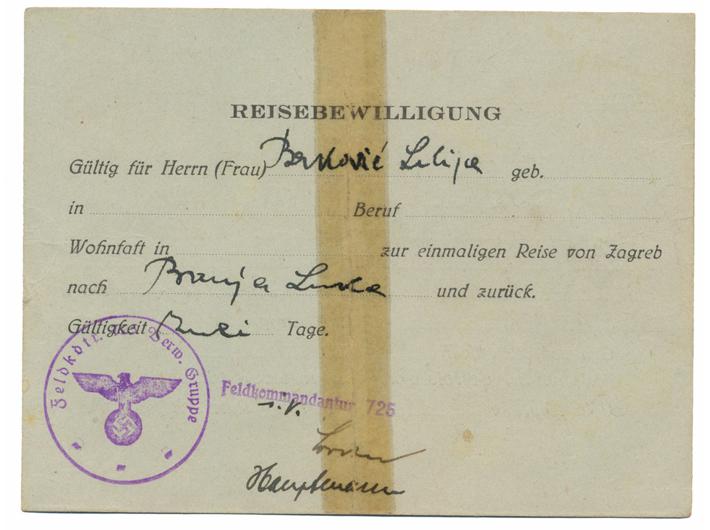 REISEBEWILLIGUNG
Gültig für Herrn (Frau) Berković Lilija geb.
in Beruf
Wohnfaft in zur einmaligen Reise von Zagreb
nach Banja Luka und zurück.
Gültigkeit Tage.
Feldkdtr. Verw. Gruppe
Feldkommandantur 725
i.V.
Hauptmann